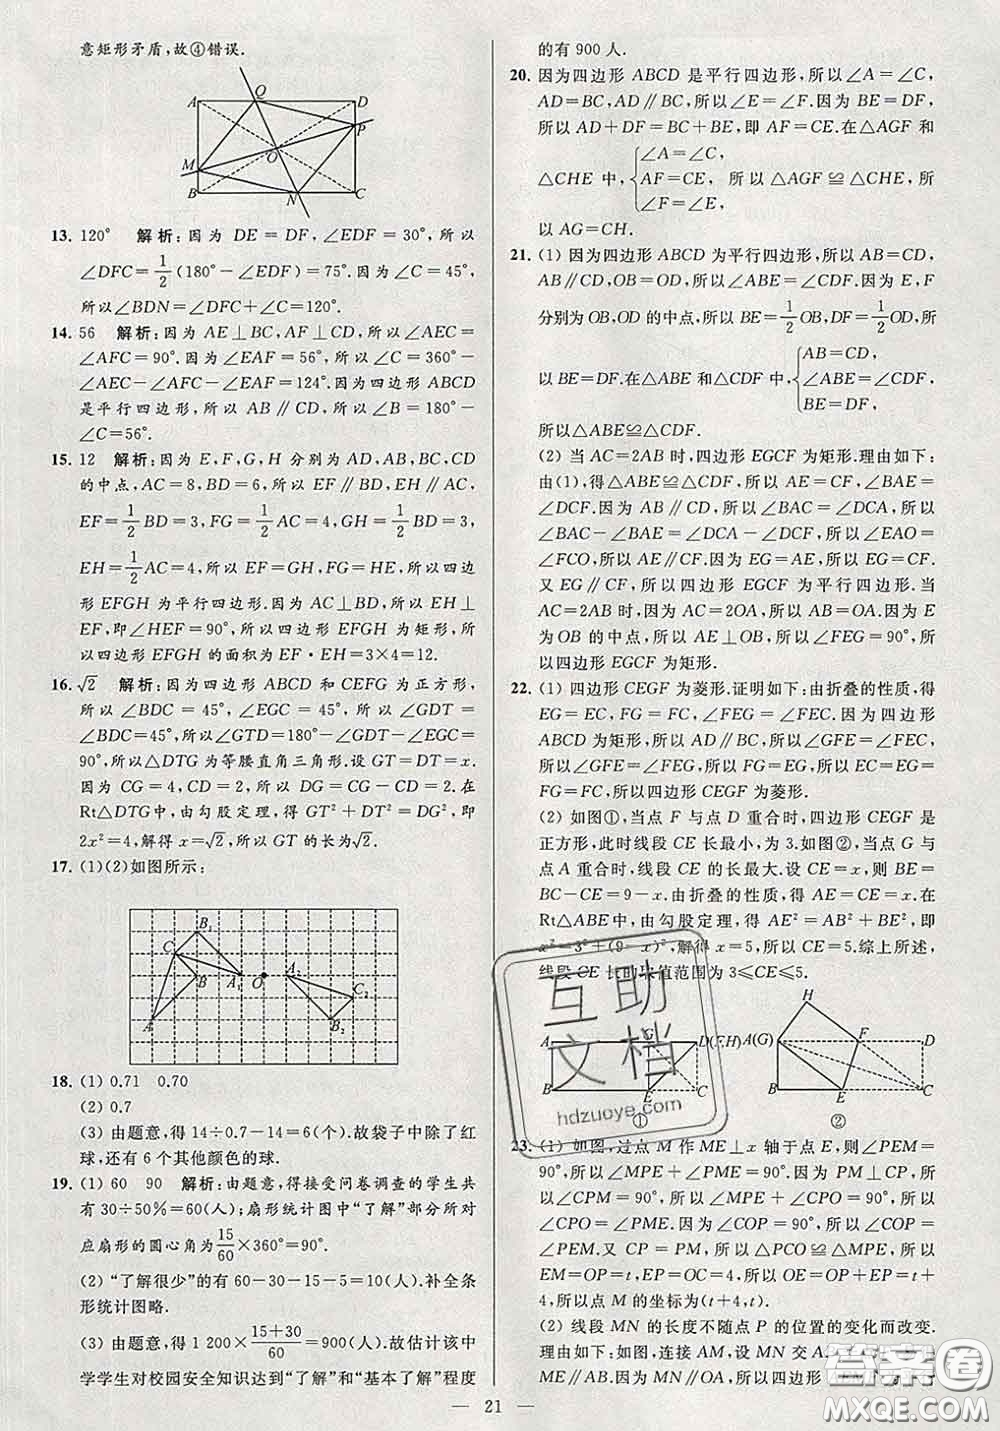 意矩形矛盾,故④错误.
A Q D
P
O
M
B N C
13. 120° 解析:因为 DE=DF,∠EDF=30°,所以
∠DFC=1/2(180°-∠EDF)=75°.因为∠C=45°,
所以∠BDN=∠DFC+∠C=120°.
14. 56 解析:因为 AE⊥BC,AF⊥CD,所以∠AEC=
∠AFC=90°.因为∠EAF=56°,所以∠C=360°-
∠AEC-∠AFC-∠EAF=124°.因为四边形 ABCD
是平行四边形,所以 AB∥CD,所以∠B=180°-
∠C=56°.
15. 12 解析:因为 E,F,G,H 分别为 AD,AB,BC,CD
的中点,AC=8,BD=6,所以 EF∥BD,EH∥AC,
EF=1/2BD=3,FG=1/2AC=4,GH=1/2BD=3,
EH=1/2AC=4,所以 EF=GH,FG=HE,所以四边
形 EFGH 为平行四边形.因为 AC⊥BD,所以 EH⊥
EF,即∠HEF=90°,所以四边形 EFGH 为矩形,所
以四边形 EFGH 的面积为 EF·EH=3×4=12.
16. √2 解析:因为四边形 ABCD 和 CEFG 为正方形,
所以∠BDC=45°,∠EGC=45°,所以∠GDT=
∠BDC=45°,所以∠GTD=180°-∠GDT-∠EGC=
90°,所以△DTG 为等腰直角三角形.设 GT=DT=x.
因为 CG=4,CD=2,所以 DG=CG-CD=2.在
Rt△DTG 中,由勾股定理,得 GT²+DT²=DG²,即
2x²=4,解得 x=√2,所以 GT 的长为√2.
17. (1)(2)如图所示:
B₁
C
B A₁ O A₂
C₂
A B₂
18. (1) 0.71 0.70
(2) 0.7
(3) 由题意,得 14÷0.7-14=6(个).故袋子中除了红
球,还有 6 个其他颜色的球.
19. (1) 60 90 解析:由题意,得接受问卷调查的学生共
有 30÷50%=60(人);扇形统计图中“了解”部分所对
应扇形的圆心角为15/60×360°=90°.
(2) “了解很少”的有 60-30-15-5=10(人).补全条
形统计图略.
(3) 由题意,得 1 200×(15+30)/60=900(人).故估计该中
学学生对校园安全知识达到“了解”和“基本了解”程度
的有 900 人.
20. 因为四边形 ABCD 是平行四边形,所以∠A=∠C,
AD=BC,AD∥BC,所以∠E=∠F.因为 BE=DF,
所以 AD+DF=BC+BE,即 AF=CE.在△AGF 和
△CHE 中,{∠A=∠C,
AF=CE,
∠F=∠E,
所以△AGF≌△CHE,所
以 AG=CH.
21. (1) 因为四边形 ABCD 为平行四边形,所以 AB=CD,
AB∥CD,OB=OD,所以∠ABE=∠CDF.因为 E,F
分别为 OB,OD 的中点,所以 BE=1/2OB,DF=1/2OD,所
以 BE=DF.在△ABE 和△CDF 中,{AB=CD,
∠ABE=∠CDF,
BE=DF,
所以△ABE≌△CDF.
(2) 当 AC=2AB 时,四边形 EGCF 为矩形.理由如下:
由(1),得△ABE≌△CDF,所以∠BAE=
∠DCF.因为 AB∥CD,所以∠BAC=∠DCA,所以
∠BAC-∠BAE=∠DCA-∠DCF,即∠EAO=
∠FCO,所以 AE∥CF.因为 EG=AE,所以 EG=CF.
又 EG∥CF,所以四边形 EGCF 为平行四边形.当
AC=2AB 时,因为 AC=2OA,所以 AB=OA.因为 E
为 OB 的中点,所以 AE⊥OB,所以∠FEG=90°,所
以四边形 EGCF 为矩形.
22. (1) 四边形 CEGF 为菱形.证明如下:由折叠的性质,得
EG=EC,FG=FC,∠GEF=∠FEC.因为四边形
ABCD 为矩形,所以 AD∥BC,所以∠GFE=∠FEC,
所以∠GFE=∠GEF,所以 EG=FG,所以 EG=EC=
FG=FC,所以四边形 CEGF 为菱形.
(2) 如图①,当点 F 与点 D 重合时,四边形 CEGF 是
正方形,此时线段 CE 长最小,为 3.如图②,当点 G 与
点 A 重合时,线段 CE 的长最大.设 CE=x,则 BE=
BC-CE=9-x.由折叠的性质,得 AE=CE=x.在
Rt△ABE 中,由勾股定理,得 AE²=AB²+BE²,即
x²=3²+(9-x)²,解得 x=5,所以 CE=5.综上所述,
线段 CE 长的取值范围为 3≤CE≤5.
A G D(F,H)
B E C
①
H
A(G) F D
B E C
②
23. (1) 如图,过点 M 作 ME⊥x 轴于点 E,所以∠PEM=
90°,所以∠MPE+∠PME=90°.因为 PM⊥CP,所
以∠CPM=90°,所以∠MPE+∠CPO=90°,所以
∠CPO=∠PME.因为∠COP=90°,所以∠COP=
∠PEM.又 CP=PM,所以△PCO≌△MPE,所以
EM=OP=t,EP=OC=4,所以 OE=OP+EP=t+
4,所以点 M 的坐标为(t+4,t).
(2) 线段 MN 的长度不随点 P 的位置的变化而改变.
理由如下:如图,连接 AM,设 MN 交 A
ME∥AB.因为 MN∥OA,所以四边形
互助文档
hdzuoye.com
答案圈
MXQE.COM
21